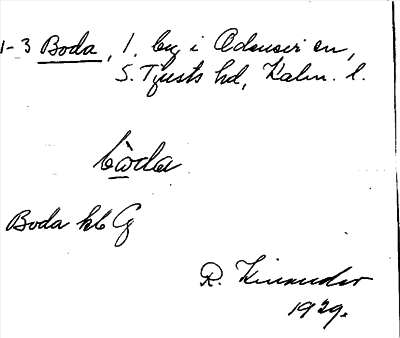 1-3 Boda, 1. by i Odensvi sn,
S. Tjusts hd, Kalm. l.
bòda
Boda kb G
R.
1929.